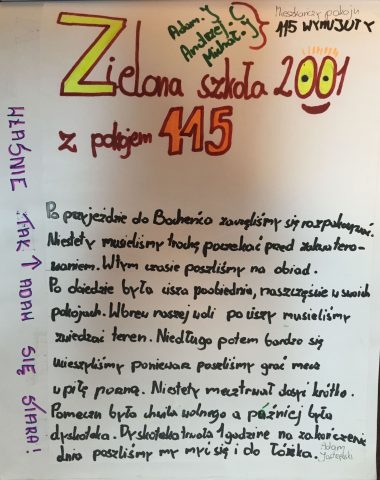 Adam.
Andrzej
Michał.
Mieszkańcy pokoju
115 WYMIUTY
Zielona szkoła 2001
z pokojem 115
Po przyjeździe do Bocheńca zaczęliśmy się rozpakowywać.
Niestety musieliśmy trochę poczekać przed zakwatero-
waniem. W tym czasie poszliśmy na obiad.
Po obiedzie była cisza poobiednia, naszczęście w swoich
pokojach. Wbrew naszej woli po ciszy musieliśmy
zwiedzać teren. Niedługo potem bardzo się
ucieszyliśmy ponieważ poszliśmy grać mecz
w piłę nożną. Niestety mecz trwał dosyć krótko.
Pomeczu była chwila wolnego a później była
dyskoteka. Dyskoteka trwała 1 godzine na zakończenie
dnia poszliśmy my myć się i do łóżka.
Adam
WŁAŚNIE TAK ↑ ADAM SIĘ STARA!